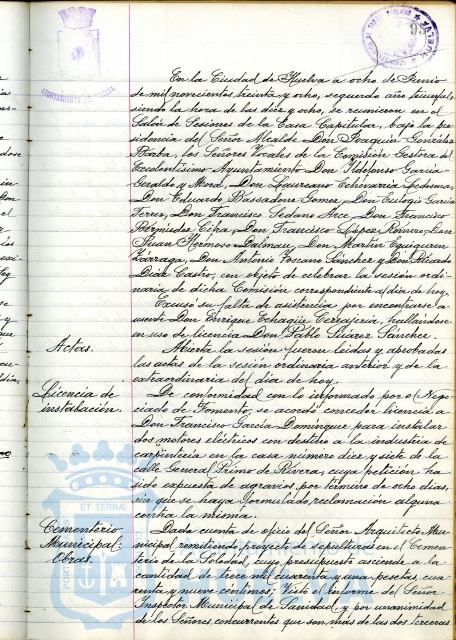 AYUNTAMIENTO DE HUELVA
En la Ciudad de Huelva a ocho de Junio
de mil novecientos treinta y ocho, segundo año triunfal
siendo la hora de las diez y ocho, se reunieron en el
Salón de Sesiones de la Casa Capitular, bajo la pre-
sidencia del Señor Alcalde Don Joaquín González
Barba, los Señores Vocales de la Comisión Gestora del
Excelentísimo Ayuntamiento Don Ildefonso García
Geraldo y Mord, Don Laureano Echevarría Ledesma,
Don Eduardo Bassadone Gómez, Don Eulogio García
Don Francisco Sedano Arce, Don Francisco
Bermúdez Don Francisco López Romero, Don
Juan Hermoso Dalmau, Don Martín Eguiguren
Zárraga, Don Antonio Toscano Sánchez y Don Ricardo
Díaz Castro, con objeto de celebrar la sesión ordi-
naria de dicha Comisión correspondiente al día de hoy.
Excusó su falta de asistencia por encontrarse a
usente Don Enrique Echagüe hallándose
en uso de licencia Don Pablo Suárez Sánchez.
Actas.
Abierta la sesión fueron leídas y aprobadas
las actas de la sesión ordinaria anterior y de la
extraordinaria del día de hoy.
Licencia de
instalación.
De conformidad con lo informado por el Nego-
ciado de Fomento, se acordó conceder licencia a
Don Francisco García Domínguez para instalar
dos motores eléctricos con destino a la industria de
carpintería en la casa número diez y siete de la
calle General Primo de Rivera, cuya petición ha
sido expuesta de agravios, por término de ocho días,
sin que se haya formulado reclamación alguna
contra la misma.
Cementerio
Municipal:
Obras.
Dada cuenta de oficio del Señor Arquitecto Mu-
nicipal remitiendo proyecto de sepulturas en el Cemen-
terio de la Soledad, cuyo presupuesto asciende a la
cantidad de trece mil cuarenta y una pesetas, cua-
renta y nueve céntimos; Visto el informe del Señor
Inspector Municipal de Sanidad y por unanimidad
de los Señores concurrentes que son más de las dos terceras